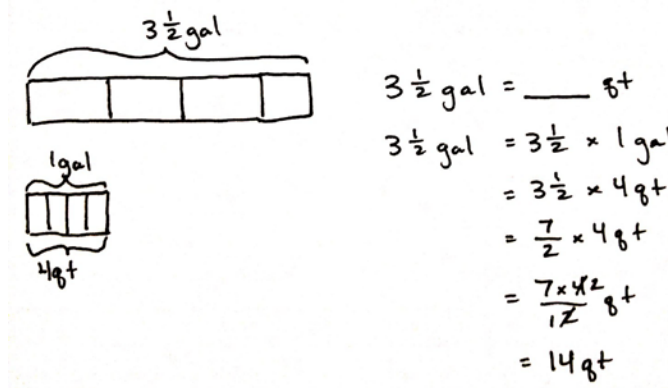 3 1/2 gal
1 gal
4qt
3 1/2 gal = ____ qt
3 1/2 gal = 3 1/2 × 1 gal
= 3 1/2 × 4qt
= 7/2 × 4qt
= 7 × 4 2 / 1 2 qt
= 14qt